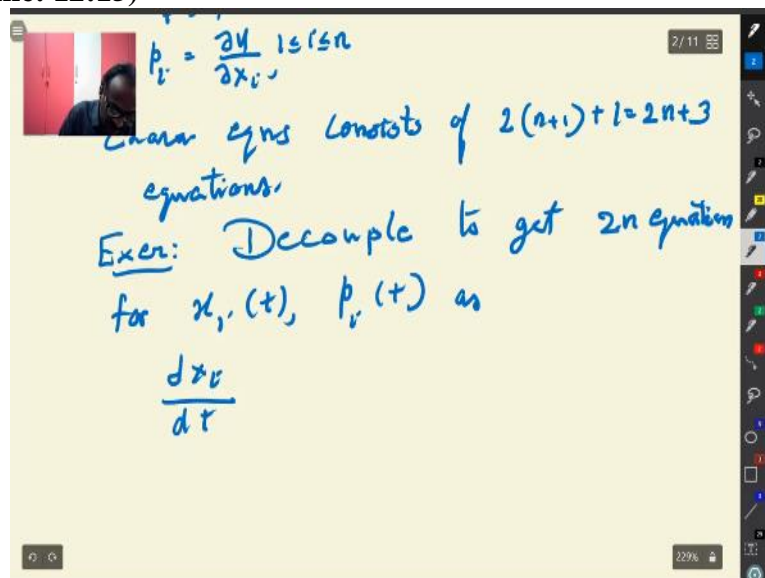 p_i = ∂u/∂x_i, 1≤i≤n
2/11
Charar eqns consists of 2(n+1)+1=2n+3
equations.
Exer: Decouple to get 2n equations
for x_i(t), p_i(t) as
dx_i/dt
229%